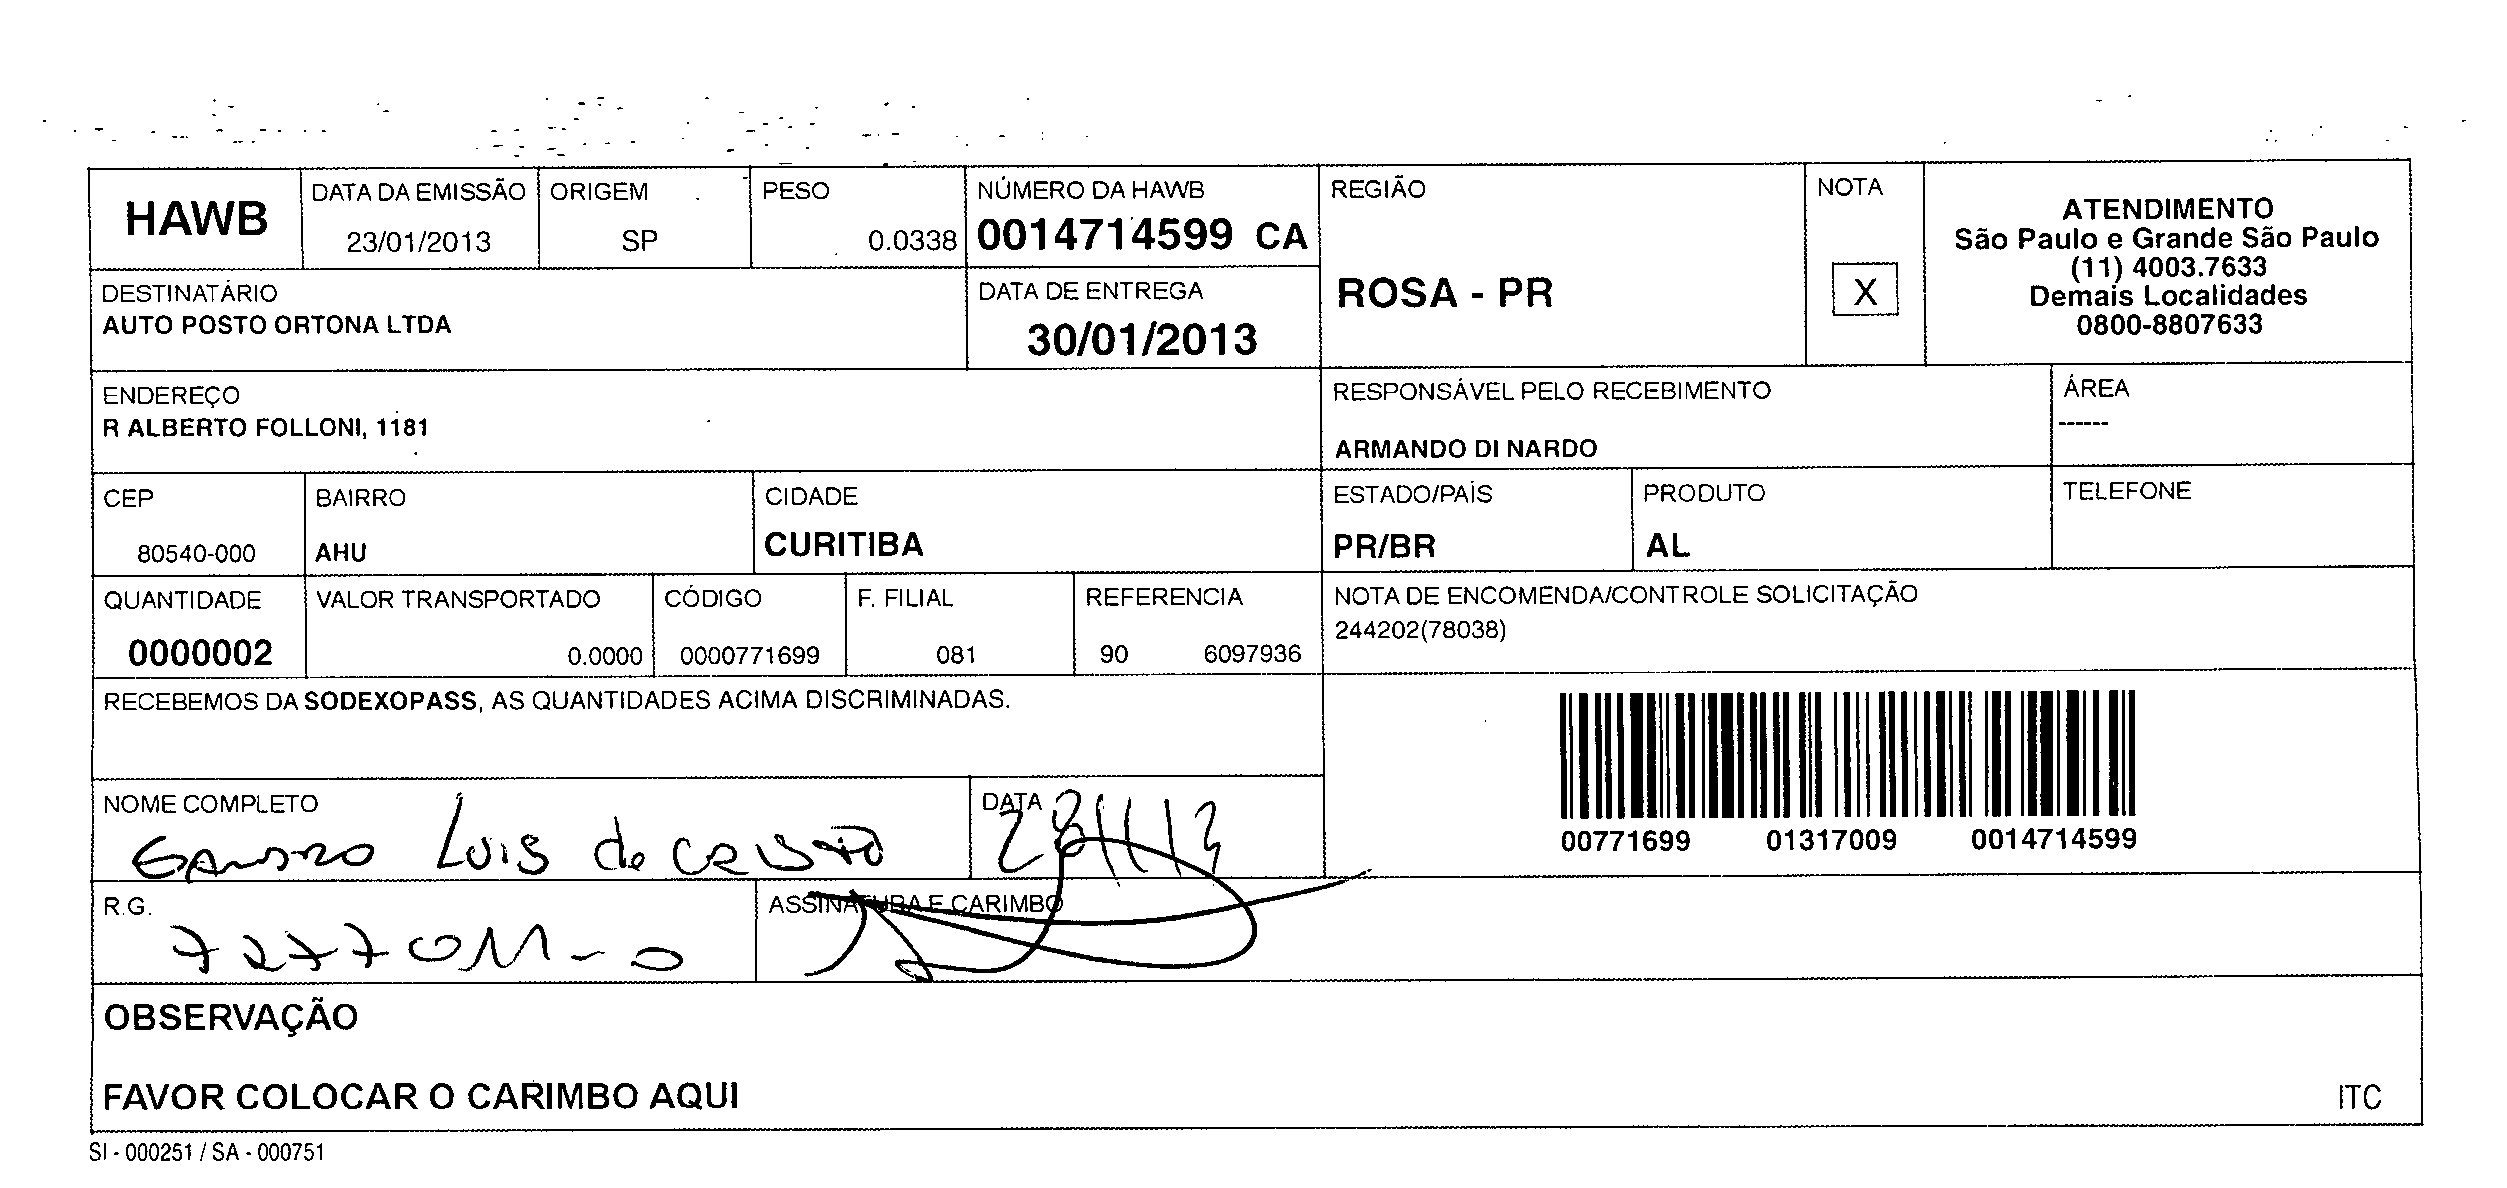 HAWB
DATA DA EMISSÃO
23/01/2013
ORIGEM
SP
PESO
0.0338
NÚMERO DA HAWB
0014714599 CA
REGIÃO
ROSA - PR
NOTA
X
ATENDIMENTO
São Paulo e Grande São Paulo
(11) 4003.7633
Demais Localidades
0800-8807633
DESTINATÁRIO
AUTO POSTO ORTONA LTDA
DATA DE ENTREGA
30/01/2013
ENDEREÇO
R ALBERTO FOLLONI, 1181
RESPONSÁVEL PELO RECEBIMENTO
ARMANDO DI NARDO
ÁREA
------
CEP
80540-000
BAIRRO
AHU
CIDADE
CURITIBA
ESTADO/PAÍS
PR/BR
PRODUTO
AL
TELEFONE
QUANTIDADE
0000002
VALOR TRANSPORTADO
0.0000
CÓDIGO
0000771699
F. FILIAL
081
REFERENCIA
90 6097936
NOTA DE ENCOMENDA/CONTROLE SOLICITAÇÃO
244202(78038)
RECEBEMOS DA SODEXOPASS, AS QUANTIDADES ACIMA DISCRIMINADAS.
00771699 01317009 0014714599
NOME COMPLETO
Luis de
DATA
28/1/13
R.G.
ASSINATURA E CARIMBO
OBSERVAÇÃO
FAVOR COLOCAR O CARIMBO AQUI
ITC
SI - 000251 / SA - 000751